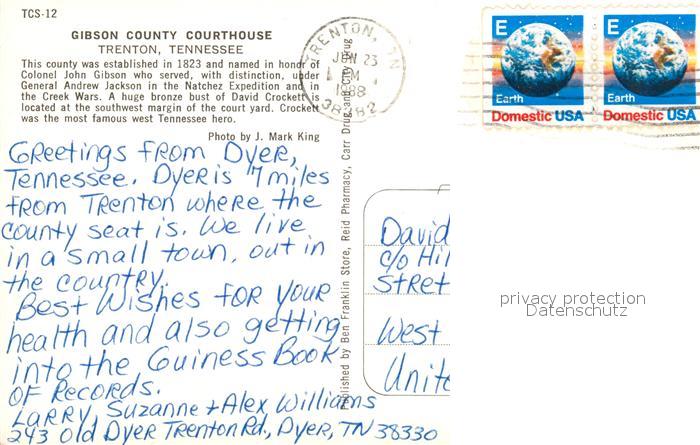 TCS-12
GIBSON COUNTY COURTHOUSE
TRENTON, TENNESSEE
This county was established in 1823 and named in honor of
Colonel John Gibson who served, with distinction, under
General Andrew Jackson in the Natchez Expedition and in
the Creek Wars. A huge bronze bust of David Crockett is
located at the southwest margin of the court yard. Crockett
was the most famous west Tennessee hero.
Photo by J. Mark King
Greetings from Dyer,
Tennessee. Dyer is 7 miles
from Trenton where the
county seat is. We live
in a small town, out in
the country.
Best Wishes for your
health and also getting
into the Guiness Book
of Records.
Larry, Suzanne + Alex Williams
243 Old Dyer Trenton Rd., Dyer, TN 38330
Published by Ben Franklin Store, Reid Pharmacy, Carr Drug, and City Drug
TRENTON, TN
JUN 23
PM
1988
38382
E
Earth
Domestic USA
E
Earth
Domestic USA
David
c/o Hil
Street
West
Unite
privacy protection
Datenschutz